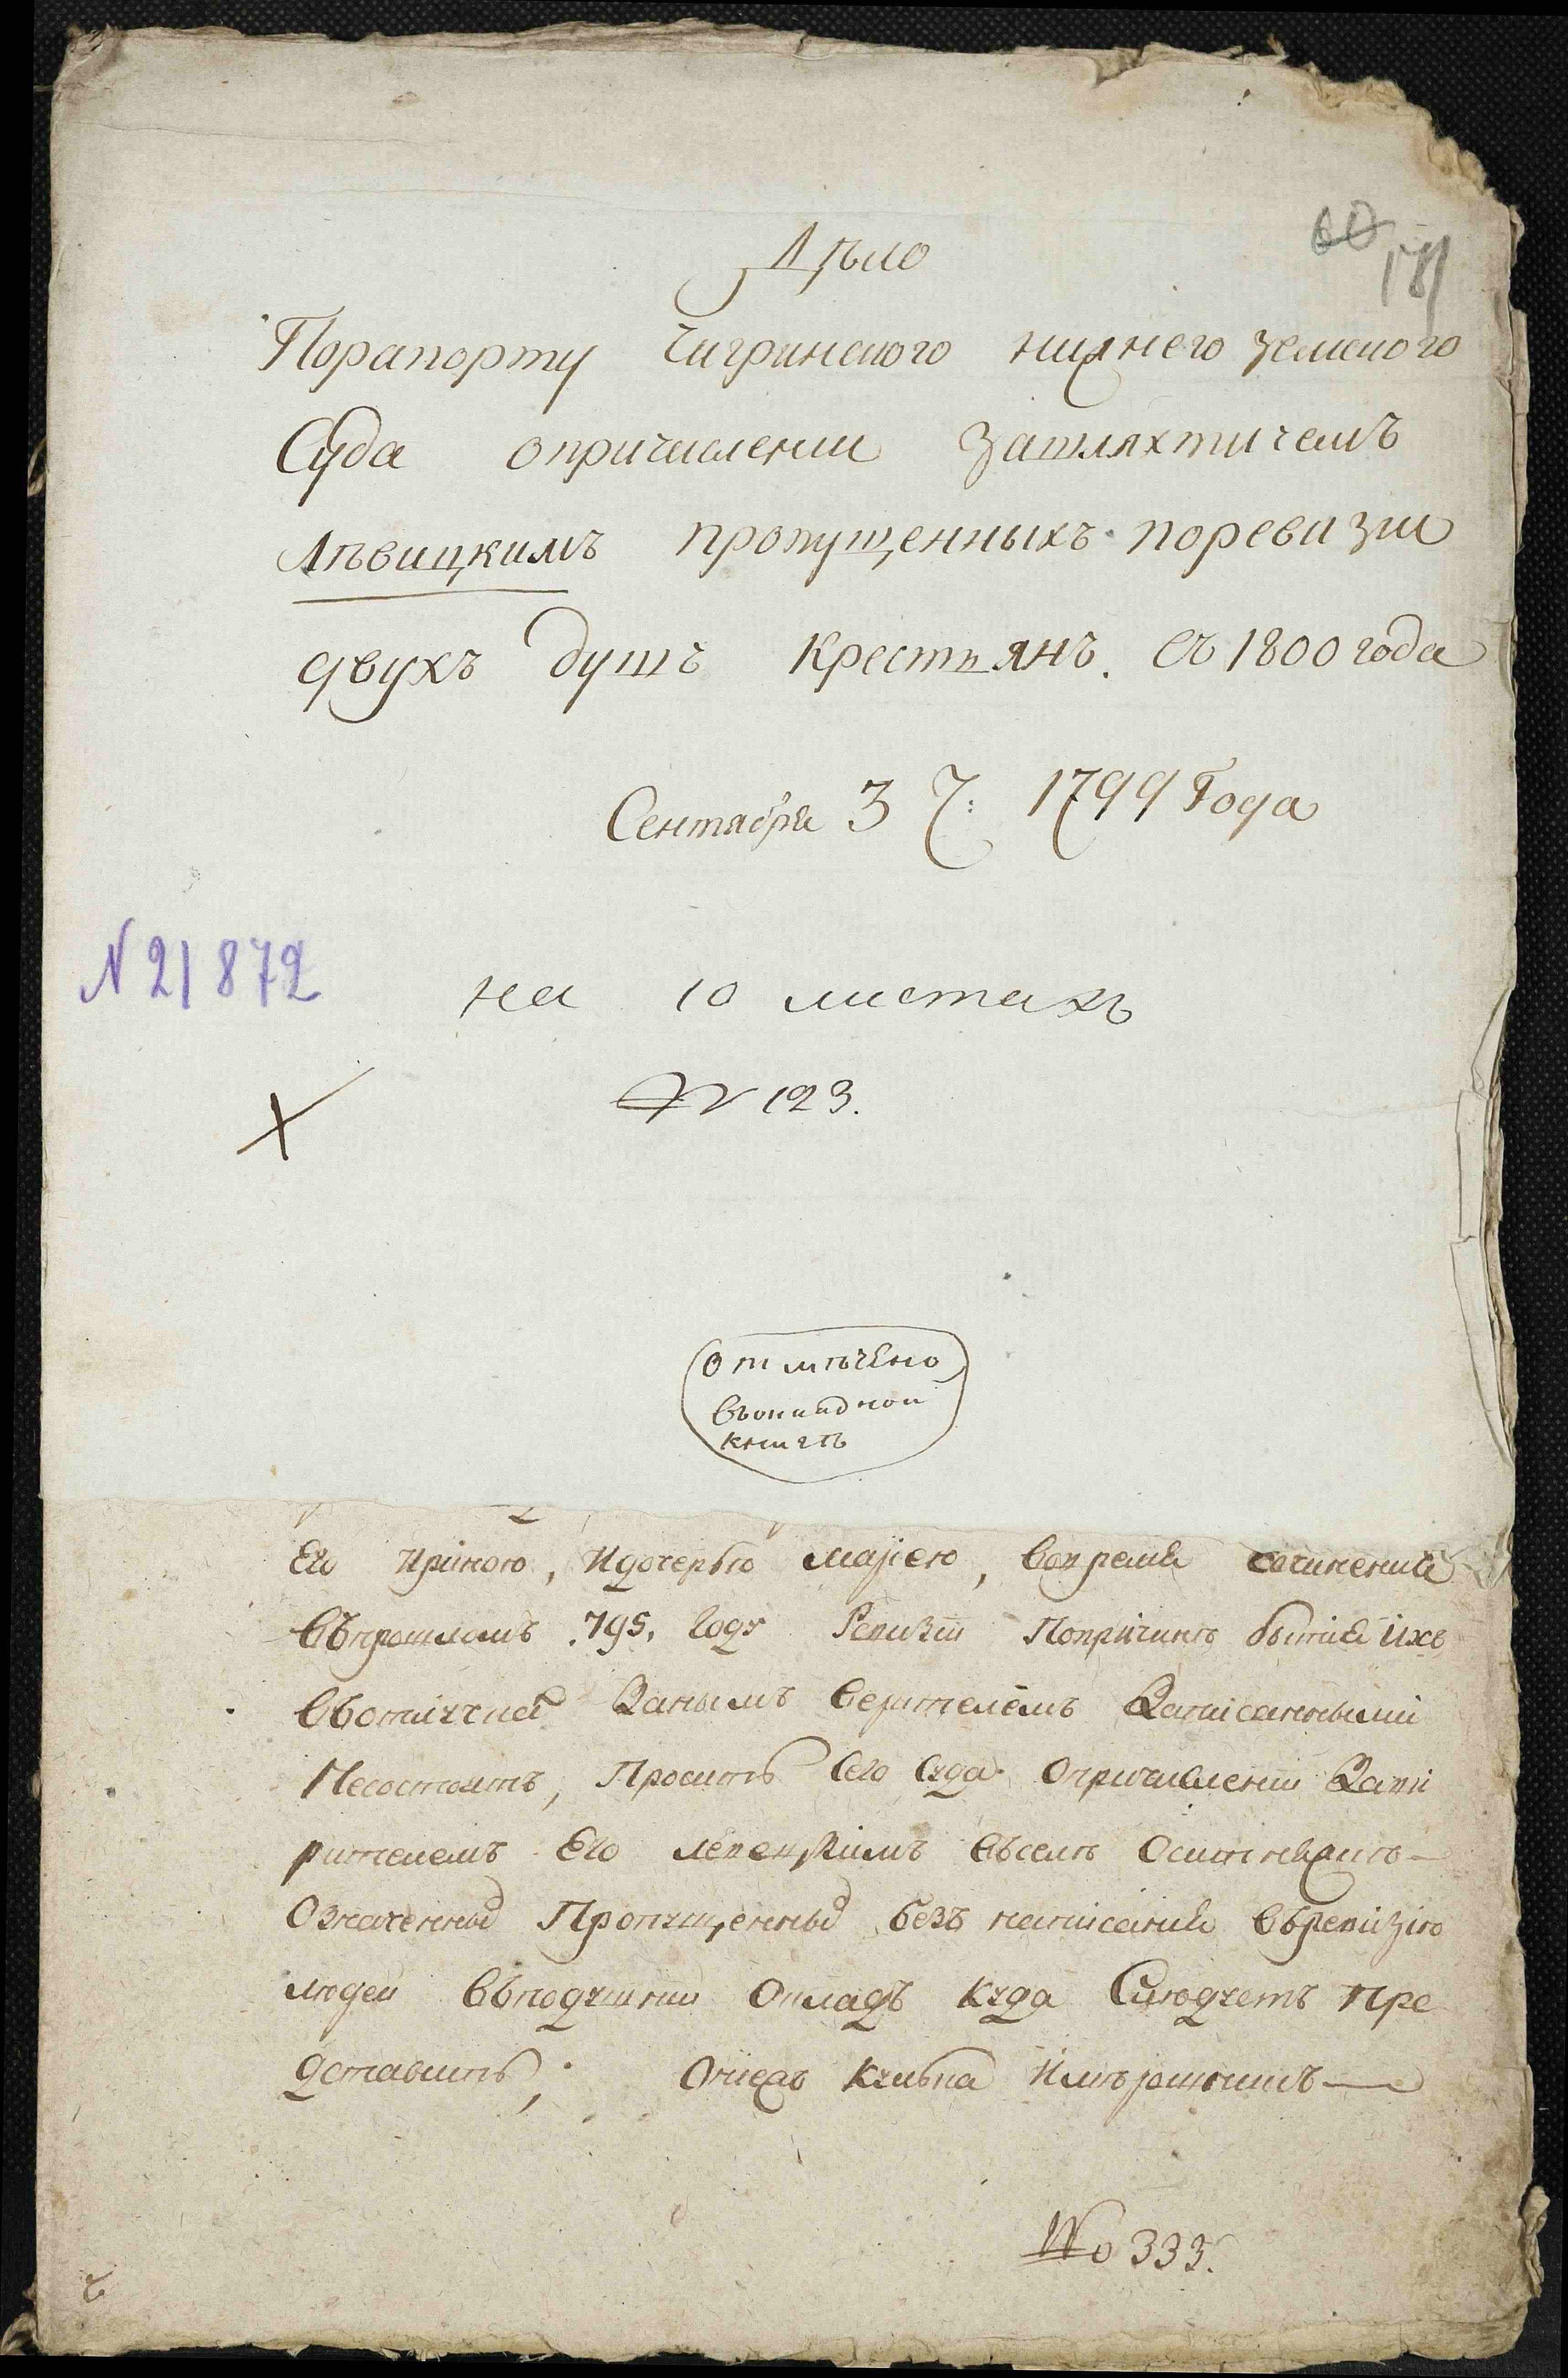 60 181
Дѣло
Порапорту Чигринского нижнего земского
Суда опричислении зашляхтичемъ
Лѣвицкимъ пропущенныхъ поревизии
двухъ душъ крестьянъ. Съ 1800 года
Сентября 3 ч: 1799 Года
N 21872
на 10 листахъ
№ 123.
Отмѣчено
въокладной
книгѣ
Его Ириною, Идочерью Маріею, вовремя сочинения
Въпрошломъ 795, Году Ревизіи Попричинѣ бытия ихъ
Вьотлучки Занымъ верителемъ Записанными
Несостоитъ, Проситъ Сего Суда опричислении Заве
рителемъ Его въселѣ
Означенныхъ Пропущенныхъ безъ написания въревизію
людей въподушнии Окладъ куда Слѣдуетъ пре
дставить;
№ 333.